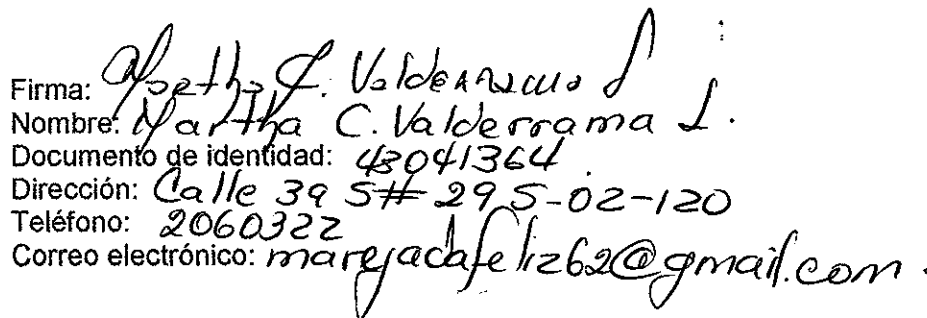 Firma: Martha C. Valderrama L
Nombre: Martha C. Valderrama L.
Documento de identidad: 43041364
Dirección: Calle 39 S# 29 S-02-120
Teléfono: 2060322
Correo electrónico: marejadafeliz62@gmail.com.